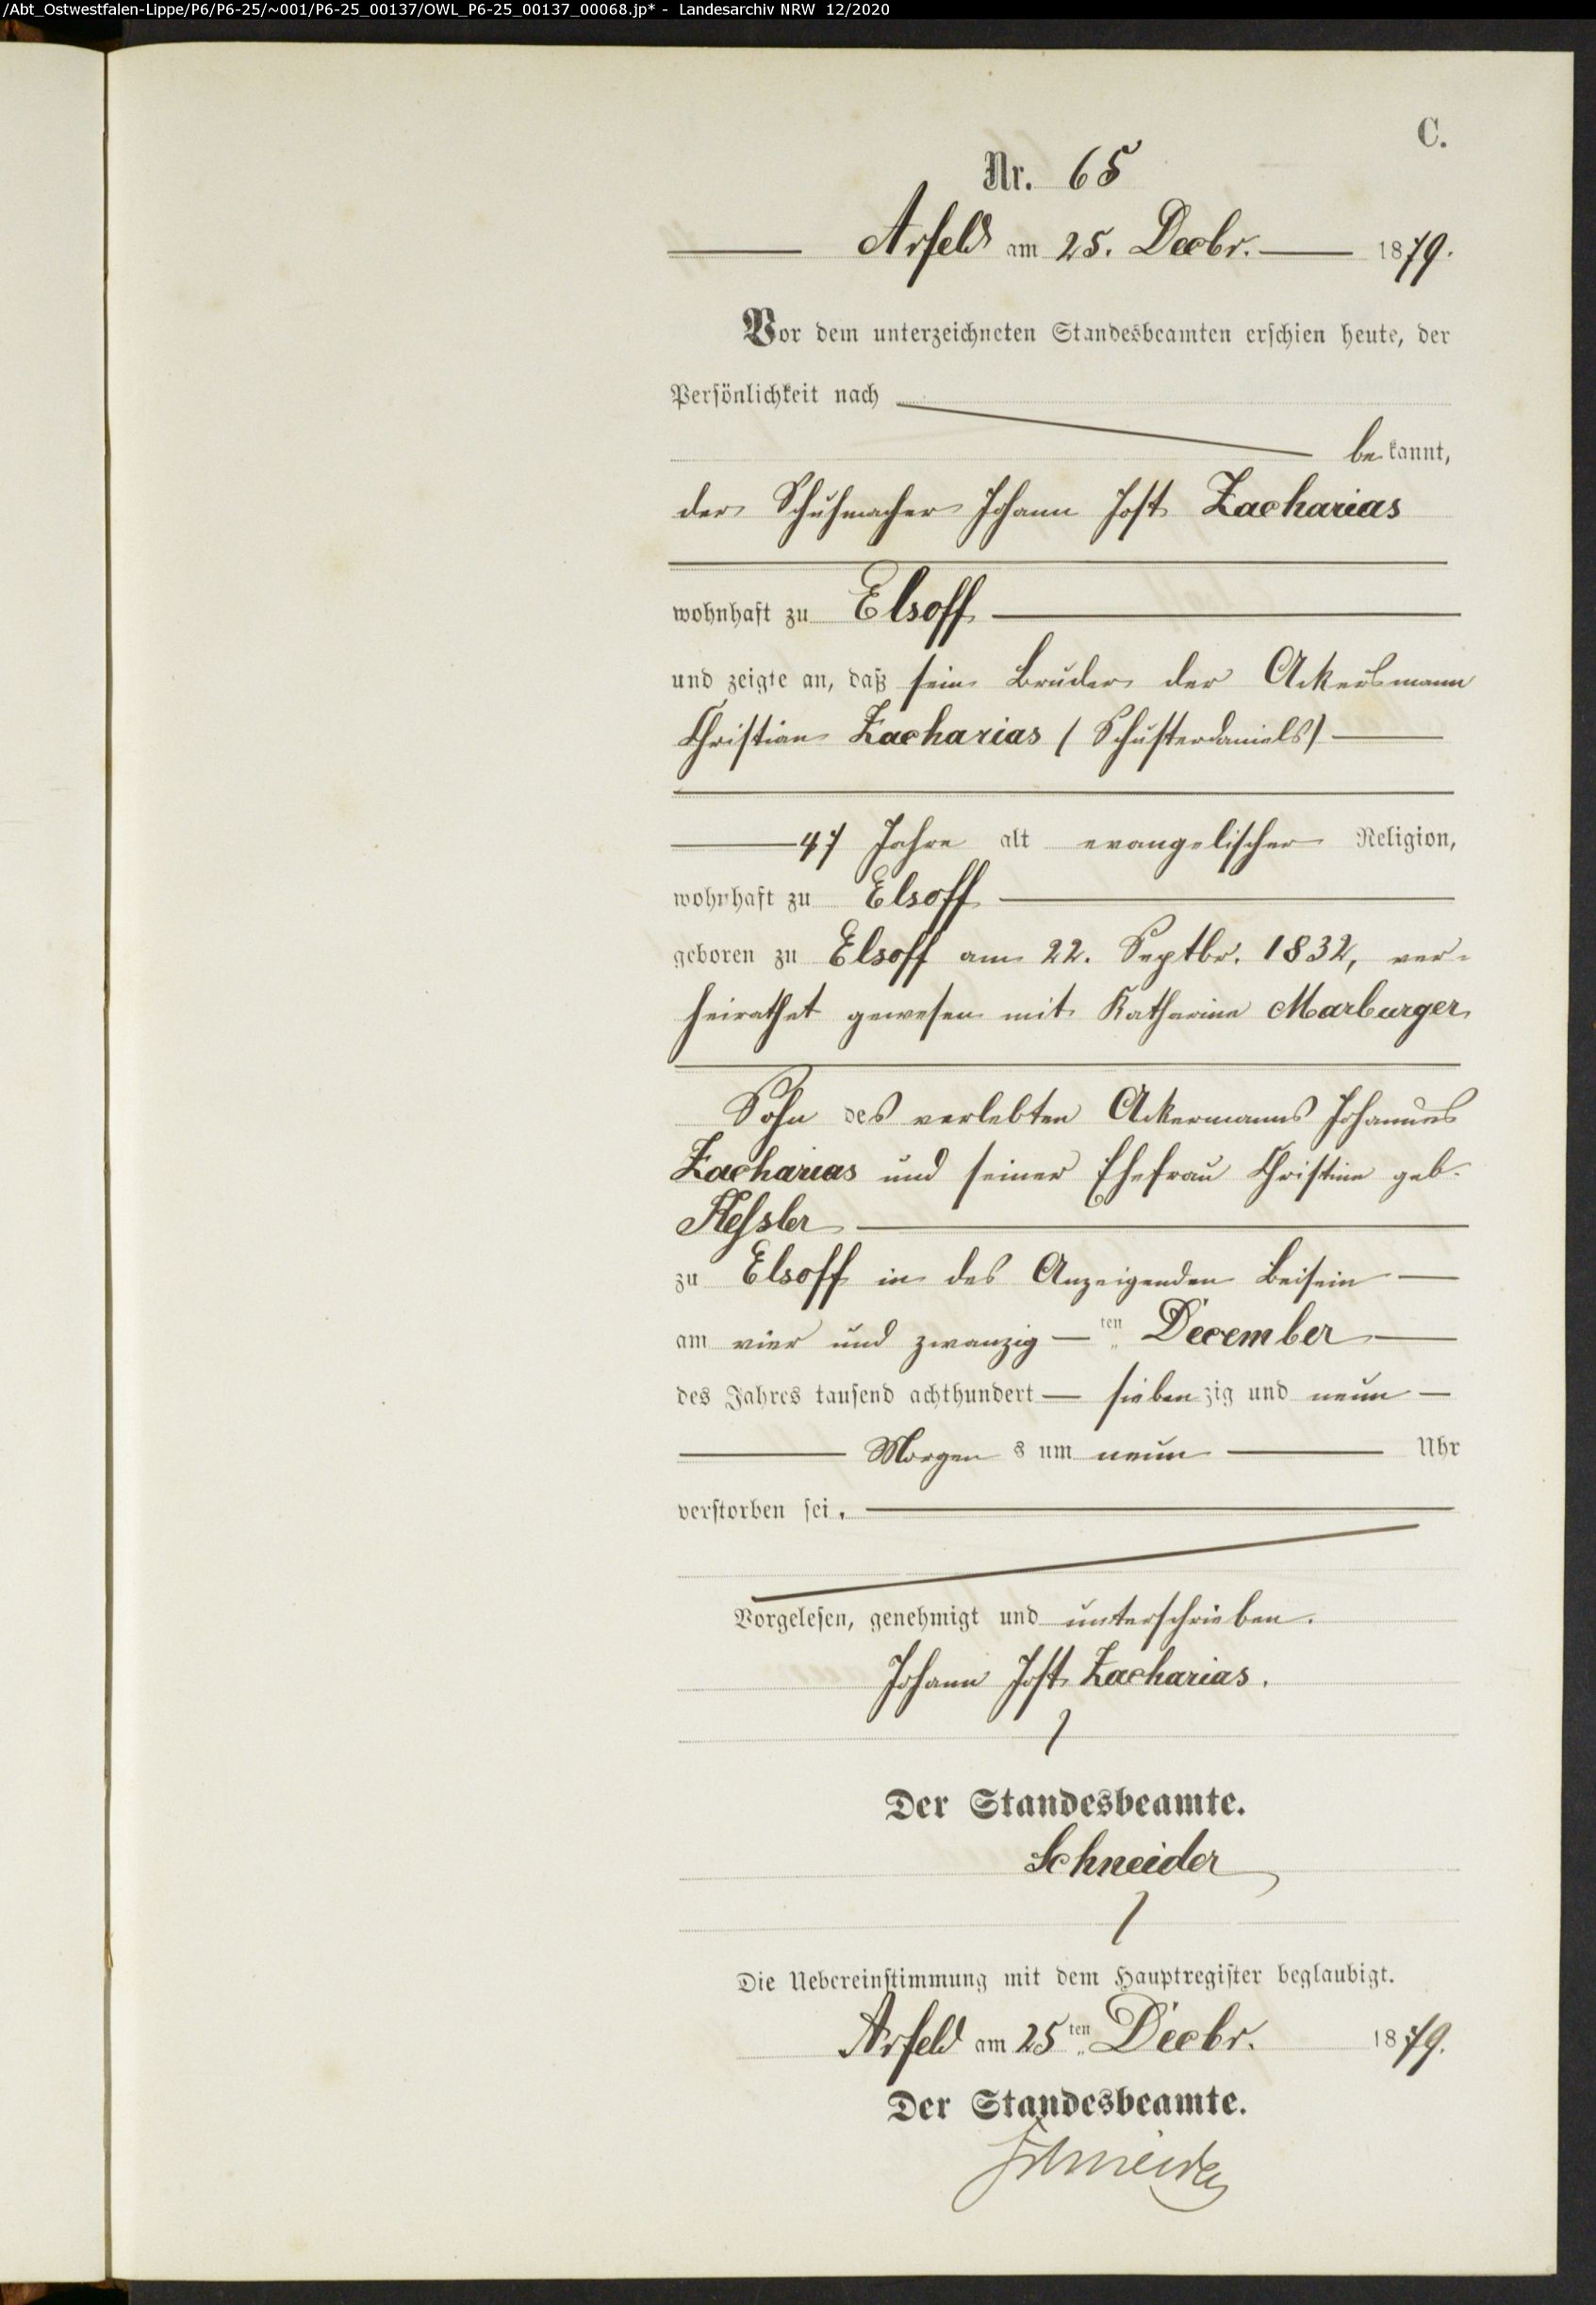 /Abt_Ostwestfalen-Lippe/P6/P6-25/~001/P6-25_00137/OWL_P6-25_00137_00068.jp* - Landesarchiv NRW 12/2020
C.
Nr. 65
Arfeld am 25. Decbr. 1879.
Vor dem unterzeichneten Standesbeamten erschien heute, der
Persönlichkeit nach
bekannt,
der Schuhmacher Johann Jost Zacharias
wohnhaft zu Elsoff
und zeigte an, daß sein Bruder der Ackersmann
Christian Zacharias (Schusterdaniels)
47 Jahre alt evangelischer Religion,
wohnhaft zu Elsoff
geboren zu Elsoff am 22. Septbr. 1832, ver-
heirathet gewesen mit Katharine Marburger
Sohn des verlebten Ackermanns Johannes
Zacharias und seiner Ehefrau Christine geb.
Keßler
zu Elsoff in des Anzeigenden Beisein
am vier und zwanzig ten December
des Jahres tausend achthundert siebenzig und neun
Morgens um neun Uhr
verstorben sei.
Vorgelesen, genehmigt und unterschrieben.
Johann Jost Zacharias.
Der Standesbeamte.
Schneider
Die Uebereinstimmung mit dem Hauptregister beglaubigt.
Arfeld am 25ten Decbr. 1879.
Der Standesbeamte.
Schneider